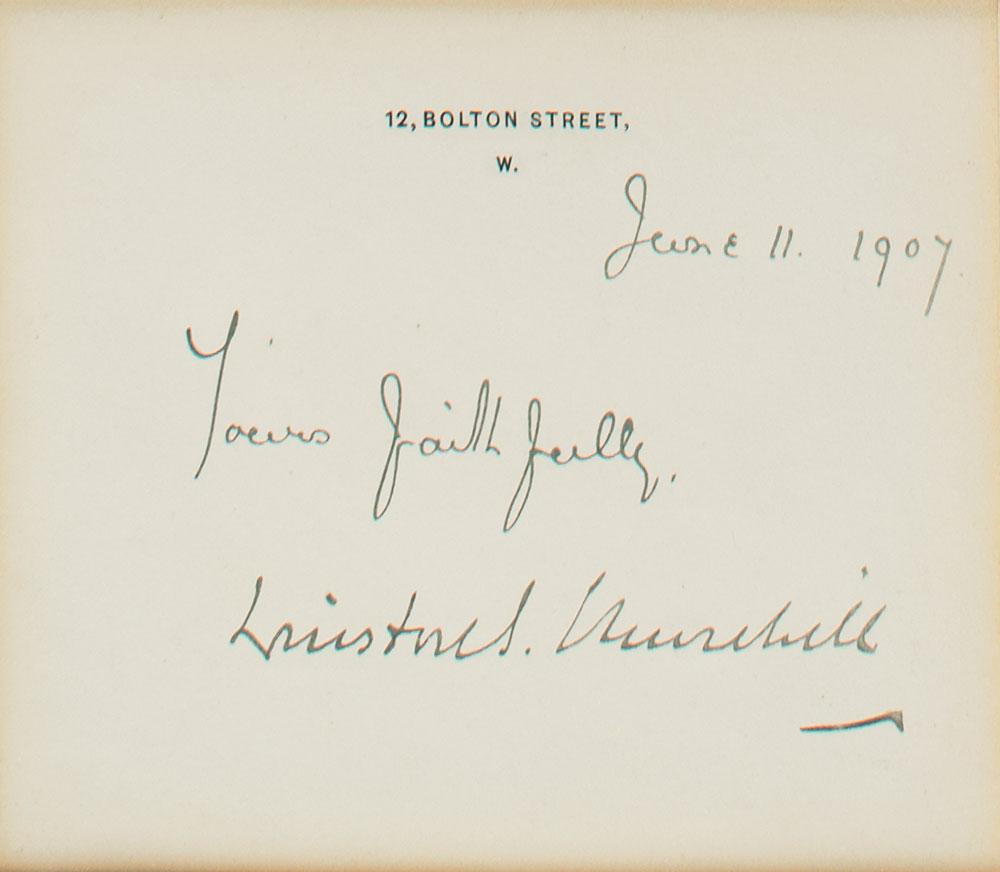 12, BOLTON STREET,
W.
June 11. 1907.
Yours faithfully.
Winston S. Churchill